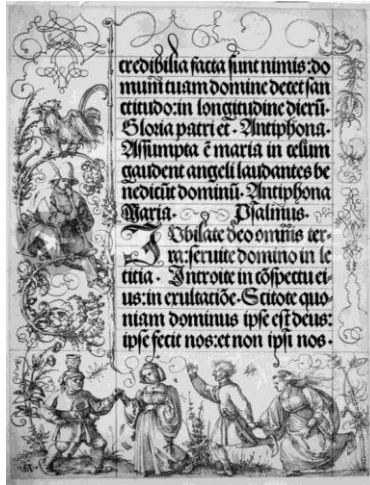 credibilia facta sunt nimis: do
mum tuam domine decet san
ctitudo: in longitudine dierū.
Gloria patri et. Antiphona.
Assumpta ē maria in celum
gaudent angeli laudantes be
nedicūt dominū. Antiphona
Maria. Psalmus.
Jubilate deo omnis ter-
ra: seruite domino in le
titia. Introite in cōspectu ei-
us: in exultatiōe. Scitote quo-
niam dominus ipse est deus:
ipse fecit nos: et non ipsi nos.